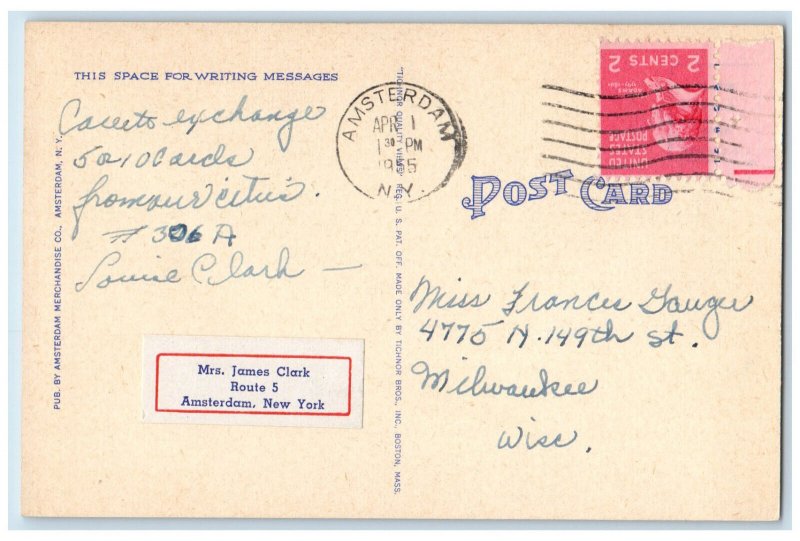 THIS SPACE FOR WRITING MESSAGES
Care to exchange
5 or 10 cards
from our cities.
# 306 A
Louise Clark —
Mrs. James Clark
Route 5
Amsterdam, New York
PUB. BY AMSTERDAM MERCHANDISE CO., AMSTERDAM, N. Y.
"TICHNOR QUALITY VIEWS," REG. U. S. PAT. OFF. MADE ONLY BY TICHNOR BROS., INC., BOSTON, MASS.
AMSTERDAM
APR 1
1 30 PM
N.Y.
2 CENTS 2
ADAMS
UNITED
STATES
POSTAGE
POST CARD
Miss Frances Gauger
4775 N. 149th st.
Milwaukee
Wisc.